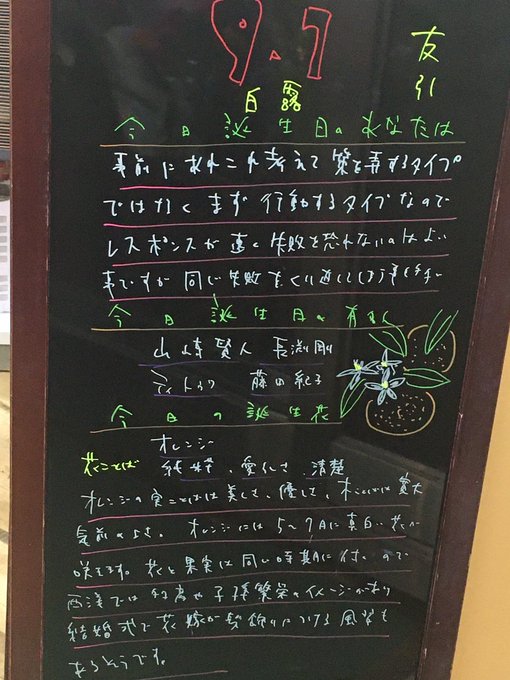 9.7
友引
白露
今日誕生日のあなたは
事前にあれこれ考えて策を弄するタイプ
ではなくまず行動するタイプなので
レスポンスが速く失敗を恐れないのはよい
事ですが同じ失敗をくり返してしまう事も多い
今日誕生日の有名人
山崎賢人 長渕剛
藤田紀子
今日の誕生花
オレンジ
花ことば 純粋、愛らしさ、清楚
オレンジの実ことばは美しさ、優しさ、木ことばは寛大
気前のよさ。オレンジには5〜7月に真白い花が
咲きます。花と果実は同い時期に付くので
西洋では多産や子孫繁栄のイメージがあり
結婚式で花嫁が髪飾りにつける風習も
あるそうです。